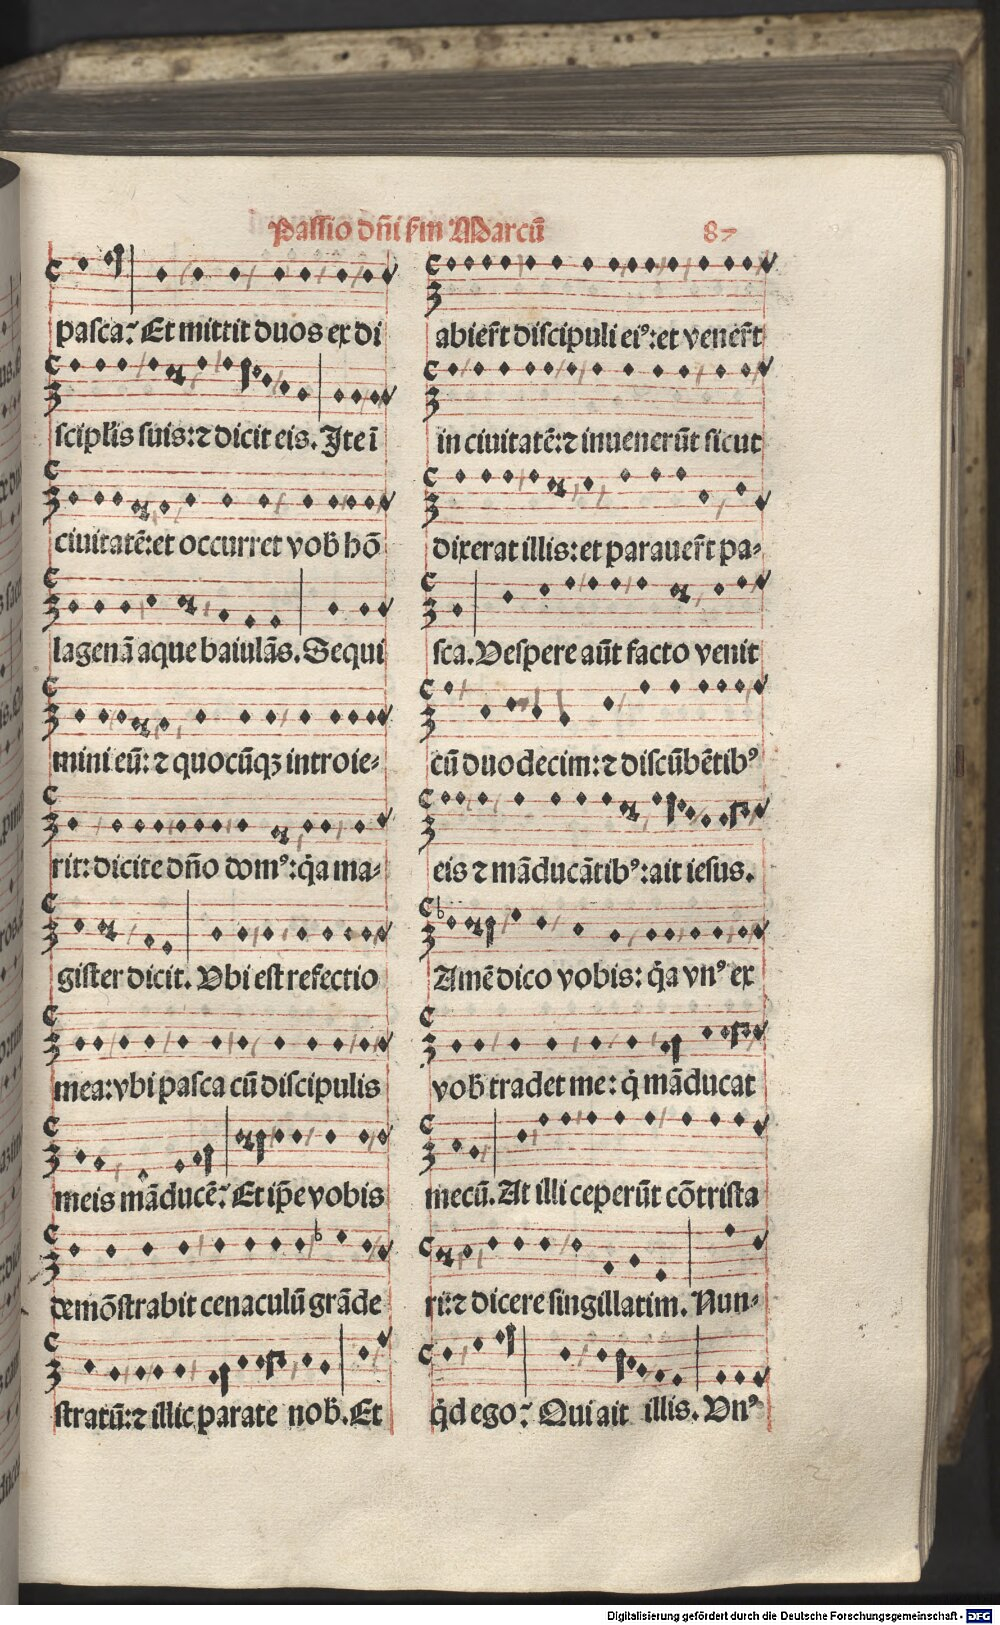 Passio dñi ẜm Marcū 87
pasca? Et mittit duos ex di
sciplis suis: ⁊ dicit eis. Ite ī
ciuitatē: et occurret vob̄ hō
lagenā aque baiulās. Sequi
mini eū: ⁊ quocūqꝫ introie-
rit: dicite dño domꝰ: q̄a ma-
gister dicit. Vbi est refectio
mea: vbi pasca cū discipulis
meis māducē? Et ip̄e vobis
demōstrabit cenaculū grāde
stratū: ⁊ illic parate nob̄. Et
abier̄t discipuli eiꝰ: et vener̄t
in ciuitatē: ⁊ inuenerūt sicut
dixerat illis: et parauer̄t pa-
sca. Vespere aūt facto venit
cū duodecim: ⁊ discūbētibꝰ
eis ⁊ māducātibꝰ: ait iesus.
Amē dico vobis: q̄a vnꝰ ex
vob̄ tradet me: q̇ māducat
mecū. At illi ceperūt cōtrista
ri: ⁊ dicere singillatim. Nun-
q̇d ego? Qui ait illis. Vnꝰ
Digitalisierung gefördert durch die Deutsche Forschungsgemeinschaft - DFG